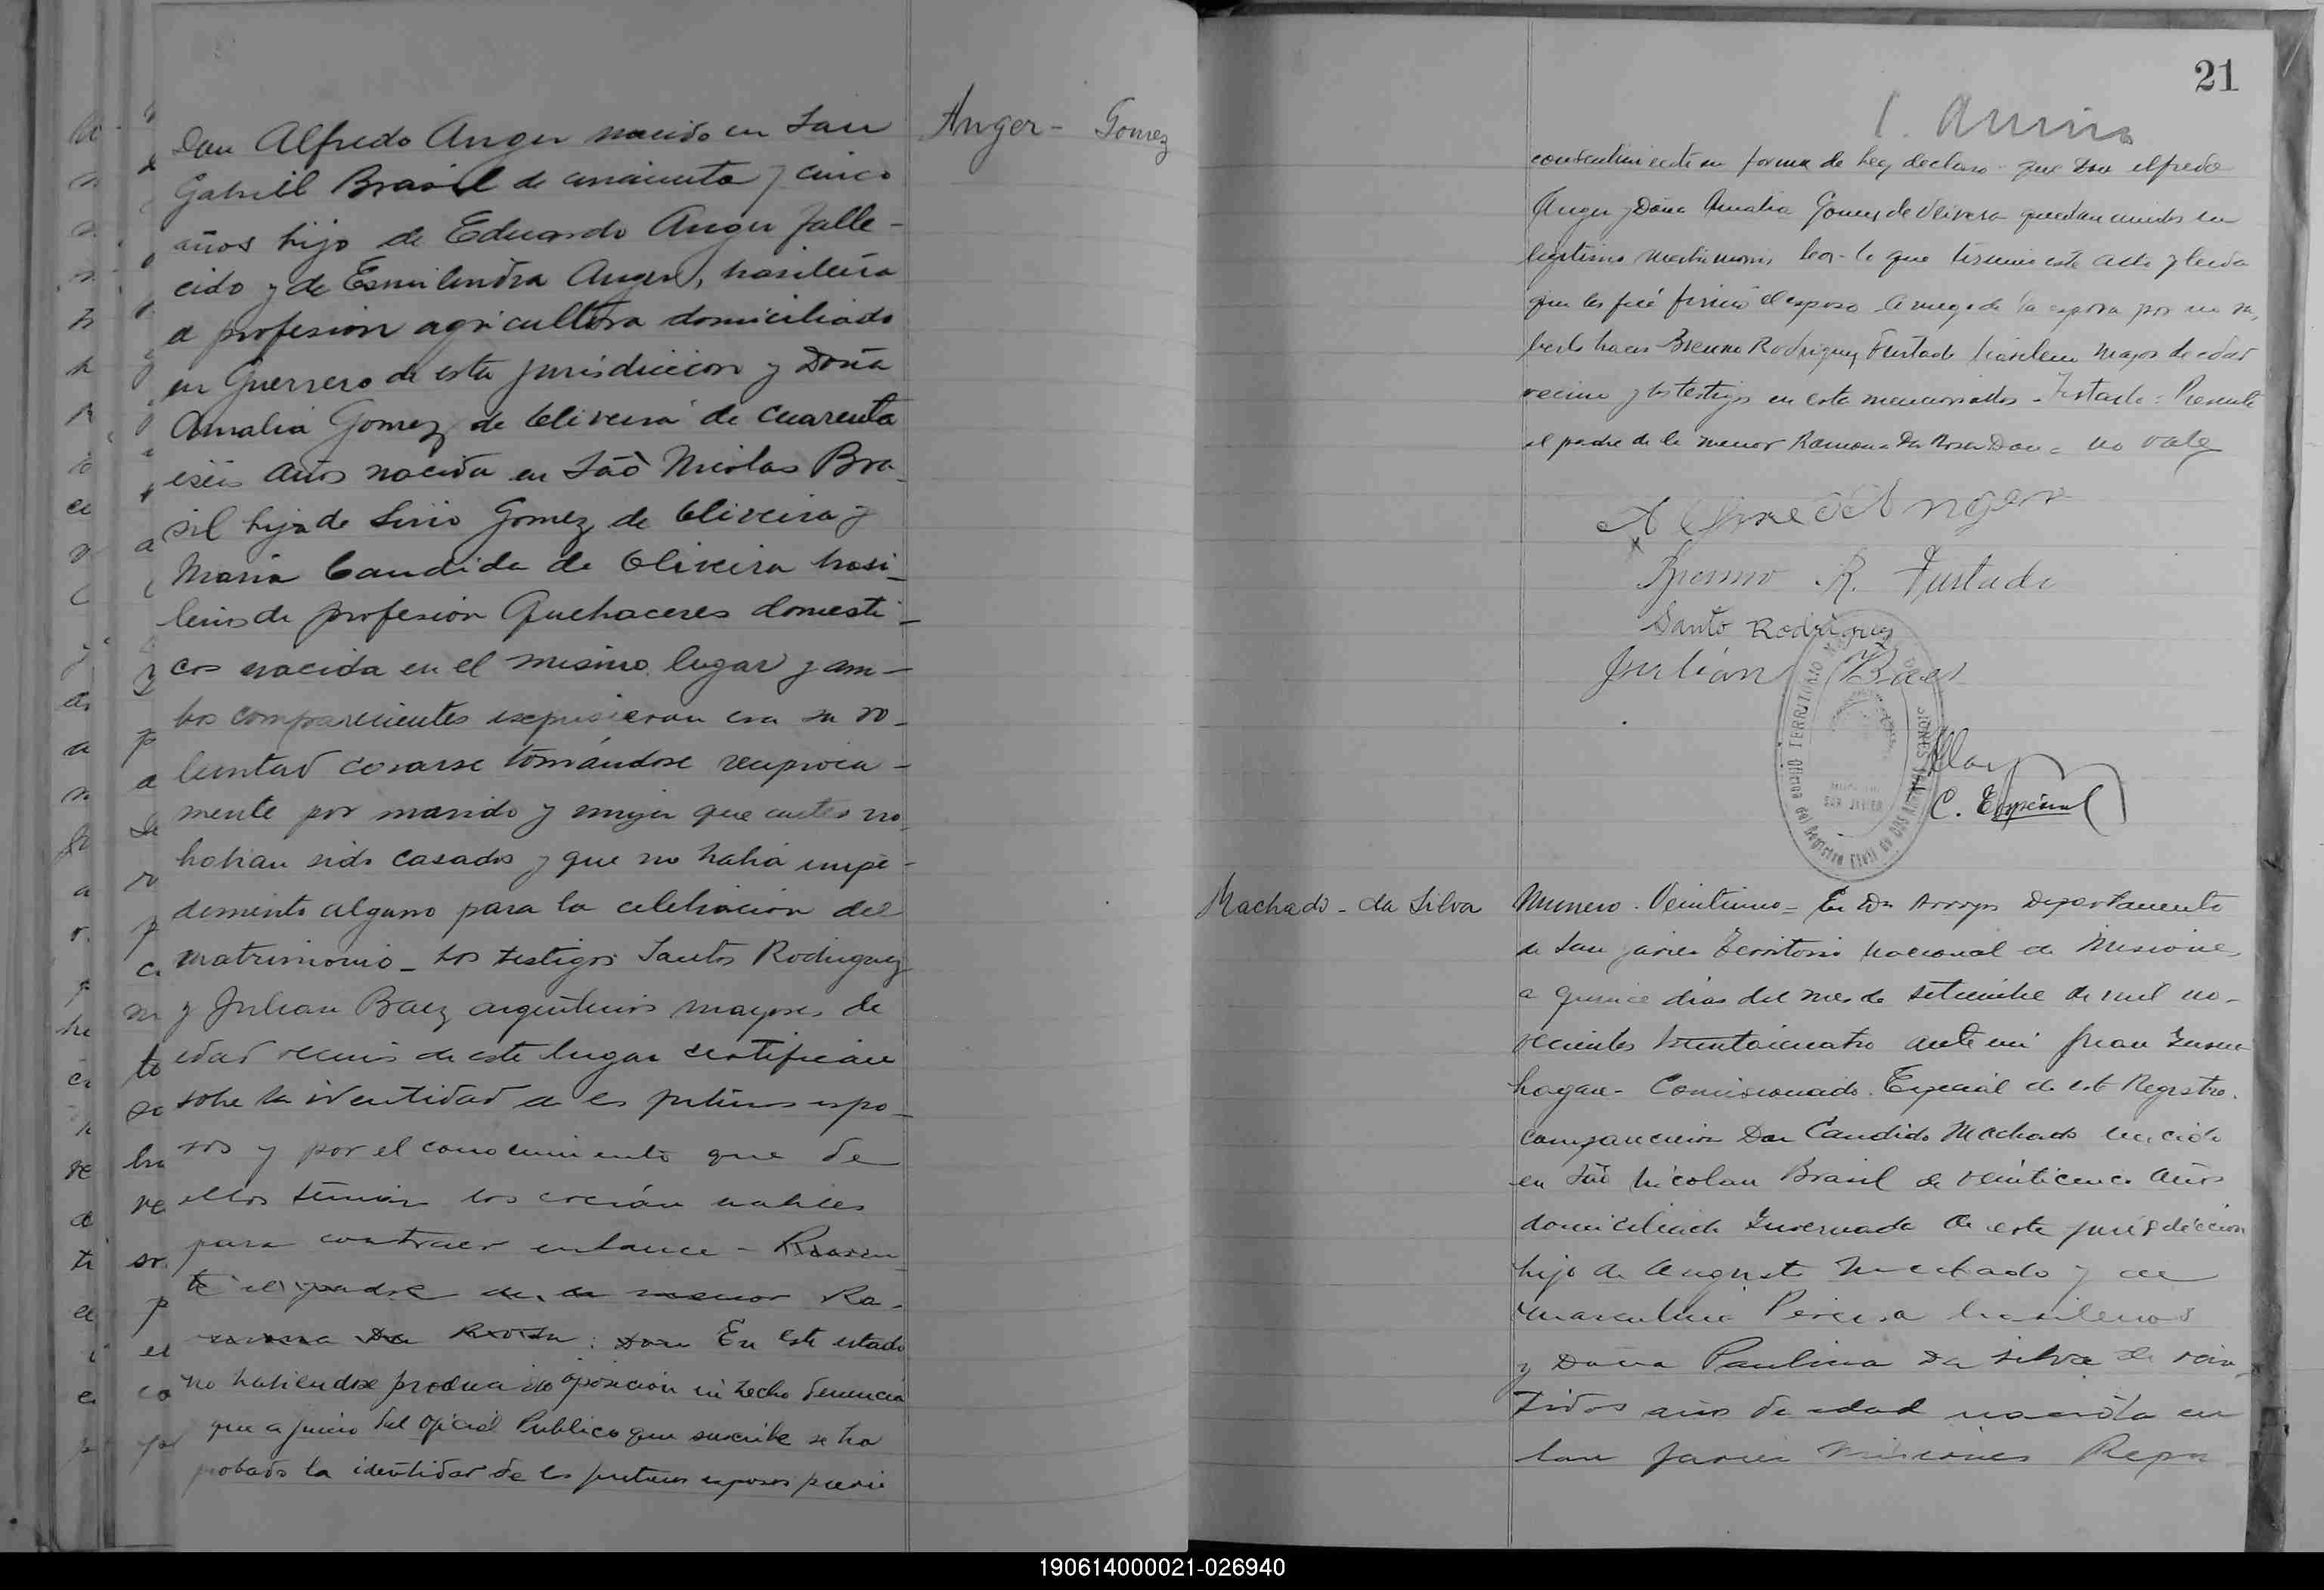 Don Alfredo Anger nacido en San
Gabriel Brasil de cincuenta y cinco
años hijo de Eduardo Anger falle-
cido y de Esmilindra Anger, brasileña
de profesion agricultora domiciliado
en Guerrero de esta jurisdiccion y Doña
Amalia Gomez de Oliveira de cuarenta
iseis años nacida en São Nicolas Bra-
sil hija de Lirio Gomez de Oliveira y
Maria Candida de Oliveira brasi-
leños de profesion Quehaceres domesti-
cos nacida en el mismo lugar y am-
bos comparecientes expusieron era su vo-
luntad casarse tomándose reciproca-
mente por marido y mujer que antes no
habian sido casados y que no habia impe-
dimento alguno para la celebracion del
matrimonio - Los testigos Santos Rodriguez
y Julian Baez argentinos mayores de
edad vecinos de este lugar certifican
sobre la identidad de los futuros espo-
sos y por el conocimiento que de
ellos tenian los creian habiles
para contraer enlace - Presen
te el padre de la menor Ra-
mona Da Rosa: Don En este estado
no habiendose producido oposicion ni hecho denuncia
que a juicio del Oficial Publico que suscribe se ha
probado la identidad de los futuros esposos previo
Anger - Gomez
21
consentimiento en forma de ley declaro que Don Alfredo
Anger y Doña Amalia Gomez de Oliveira quedan unidos en
legitimo matrimonio con lo que termino este acta y leida
que les fué firmó el esposo a ruego de la esposa por no sa-
berlo hacer Brenno Rodriguez Furtado brasilero mayor de edad
vecino y los testigos en esta mencionados - Testado: Presente
el padre de la menor Ramona Da Rosa Don = no vale
Alfredo Anger
Brenno R. Furtado
Santo Rodriguez
Julian Baez
C. Especial
TERRITORIO
SAN JAVIER
Oficina del Registro Civil de Dos Arroyos
Machado - da Silva
Numero Veintiuno = En Dos Arroyos Departamento
de San Javier Territorio Nacional de Misiones
a quince dias del mes de setiembre de mil no-
vecientos treintaicuatro ante mi Juan
Comisionado Especial de este Registro
comparecieron Don Candido Machado nacido
en São Nicolau Brasil de veinticinco años
domiciliado Invernada de este jurisdiccion
hijo de Augusto Machado y de
Marculina Pereira brasileños
y Doña Paulina Da Silva de vein-
tidos años de edad nacida en
San Javier Misiones Repu
190614000021-026940